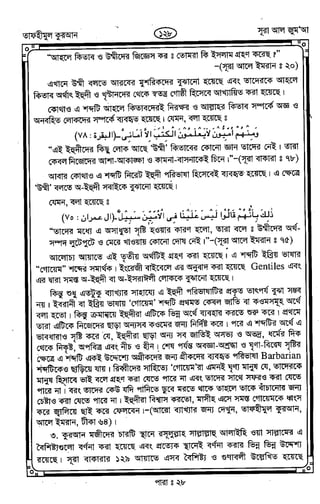 তাফহীমুল কুরআন
১২৮
সূরা আল জুম'আ
"আহলে কিতাব ও উম্মীদের জিজ্ঞেস কর ঃ তোমরা কি ইসলাম গ্রহণ করেছ ?"
–(সূরা আলে ইমরান ঃ ২০)
এখানে উম্মী বলতে আরবের মুশরিকদের বুঝানো হয়েছে এবং তাদেরকে আহলে
কিতাব অর্থাৎ ইহুদী ও খৃস্টানদের থেকে স্বতন্ত্র গোষ্ঠী হিসেবে আখ্যায়িত করা হয়েছে।
কোথাও এ শব্দটি আহলে কিতাবদেরই নিরক্ষর ও আল্লাহর কিতাব সম্পর্কে অজ্ঞ ও
অনবহিত লোকদের সম্পর্কে ব্যবহৃত হয়েছে। যেমন, বলা হয়েছে ঃ
وَمِنْهُمْ أُمِّيُّونَ لَا يَعْلَمُونَ الْكِتٰبَ إِلَّا أَمَانِيَّ – (البقرة : ٧٨)
"এই ইহুদীদের কিছু লোক আছে 'উম্মী' কিতাবের কোনো জ্ঞান তাদের নেই। তারা
কেবল নিজেদের আশা-আকাঙ্ক্ষা ও কামনা-বাসনাকেই চিনে।"–(সূরা বাকারা ঃ ৭৮)
আবার কোথাও এ শব্দটি নিরেট ইহুদী পরিভাষা হিসেবেই ব্যবহৃত হয়েছে। এ ক্ষেত্রে
'উম্মী' বলতে অ-ইহুদী সবাইকে বুঝানো হয়েছে।
যেমন, বলা হয়েছে ঃ
ذٰلِكَ بِأَنَّهُمْ قَالُوا لَيْسَ عَلَيْنَا فِي الْأُمِّيِّنَ سَبِيلٌ – (ال عمران : ٧٥)
"তাদের মধ্যে এ অসাধুতা সৃষ্টি হওয়ার কারণ হলো, তারা বলে ঃ উম্মীদের অর্থ-
সম্পদ লুটেপুটে ও মেরে খাওয়ায় কোনো দোষ নেই।"–(সূরা আলে ইমরান ঃ ৭৫)
আলোচ্য আয়াতে এই তৃতীয় অর্থটিই গ্রহণ করা হয়েছে। এ শব্দটি ইব্রিয় ভাষার
"গোয়েম" শব্দের সমার্থক। ইংরেজী বাইবেলে এর অনুবাদ করা হয়েছে Gentiles এবং
এর দ্বারা সমস্ত অ-ইহুদী বা অ-ইসরাঈলী লোককে বুঝানো হয়েছে।
কিন্তু শুধু এতটুকু ব্যাখ্যার সাহায্যে এ ইহুদী পরিভাষাটির প্রকৃত তাৎপর্য বুঝা সম্ভব
নয়। ইবরানী বা ইব্রিয় ভাষায় 'গোয়েম' শব্দটি প্রথমত কেবল জাতি বা কওমসমূহ অর্থে
বলা হতো। কিন্তু ক্রমান্বয়ে ইহুদীরা এটিকে ভিন্ন অর্থে ব্যবহার করতে শুরু করে। প্রথমে
তারা এটিকে নিজেদের ছাড়া অন্যসব কওমের জন্য নির্দিষ্ট করে। পরে এ শব্দটির অর্থে এ
ভাবধারাও সৃষ্টি করে যে, ইহুদীরা ছাড়া অন্য সব জাতিই অসভ্য ও অভদ্র, ধর্মের দিক
থেকে নিকৃষ্ট, অপবিত্র এবং নীচ ও হীন। শেষ পর্যন্ত অবজ্ঞা-অশ্রদ্ধা ও ঘৃণা-বিদ্বেষ সৃষ্টির
ক্ষেত্রে এ শব্দটি একই উদ্দেশ্যে অগ্রীকদের জন্য গ্রীকদের ব্যবহৃত পরিভাষা Barbarian
শব্দটিকেও ছাড়িয়ে যায়। রিব্বীদের সাহিত্যে 'গোয়েম'রা এমনই ঘৃণ্য মানুষ যে, তাদেরকে
মানুষ হিসেবে ভাই বলে গ্রহণ করা যেতে পারে না এবং তাদের সাথে সফরও করা যেতে
পারে না। বরং তাদের কেউ যদি পানিতে ডুবে মরতে থাকে তাহলে তাকে বাঁচানোর জন্য
চেষ্টাও করা যেতে পারে না। ইহুদীরা বিশ্বাস করতো, মাসীহ এসে সমস্ত গোয়েমকে ধ্বংস
করে জ্বালিয়ে ছাই করে ফেলবেন।–(আরো ব্যাখ্যার জন্য দেখুন, তাফহীমুল কুরআন,
আলে ইমরান, টীকা ৬৪)।
৩. কুরআন মজীদের চারটি স্থানে রসূলুল্লাহ সাল্লাল্লাহু আলাইহি ওয়া সাল্লামের এ
বৈশিষ্ট্যগুলো বর্ণনা করা হয়েছে এবং প্রত্যেক স্থানেই বর্ণনা করার ভিন্ন ভিন্ন উদ্দেশ্য
রয়েছে। সূরা বাকারার ১২৯ আয়াতে এসব বৈশিষ্ট্য ও গুণাবলী উল্লেখিত হয়েছে
পারা ঃ ২৮